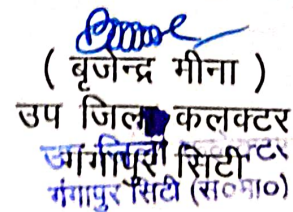 ( बृजेन्द्र मीना )
उप जिला कलक्टर
गंगापुर सिटी
उप जिला कलक्टर
गंगापुर सिटी (स०मा०)